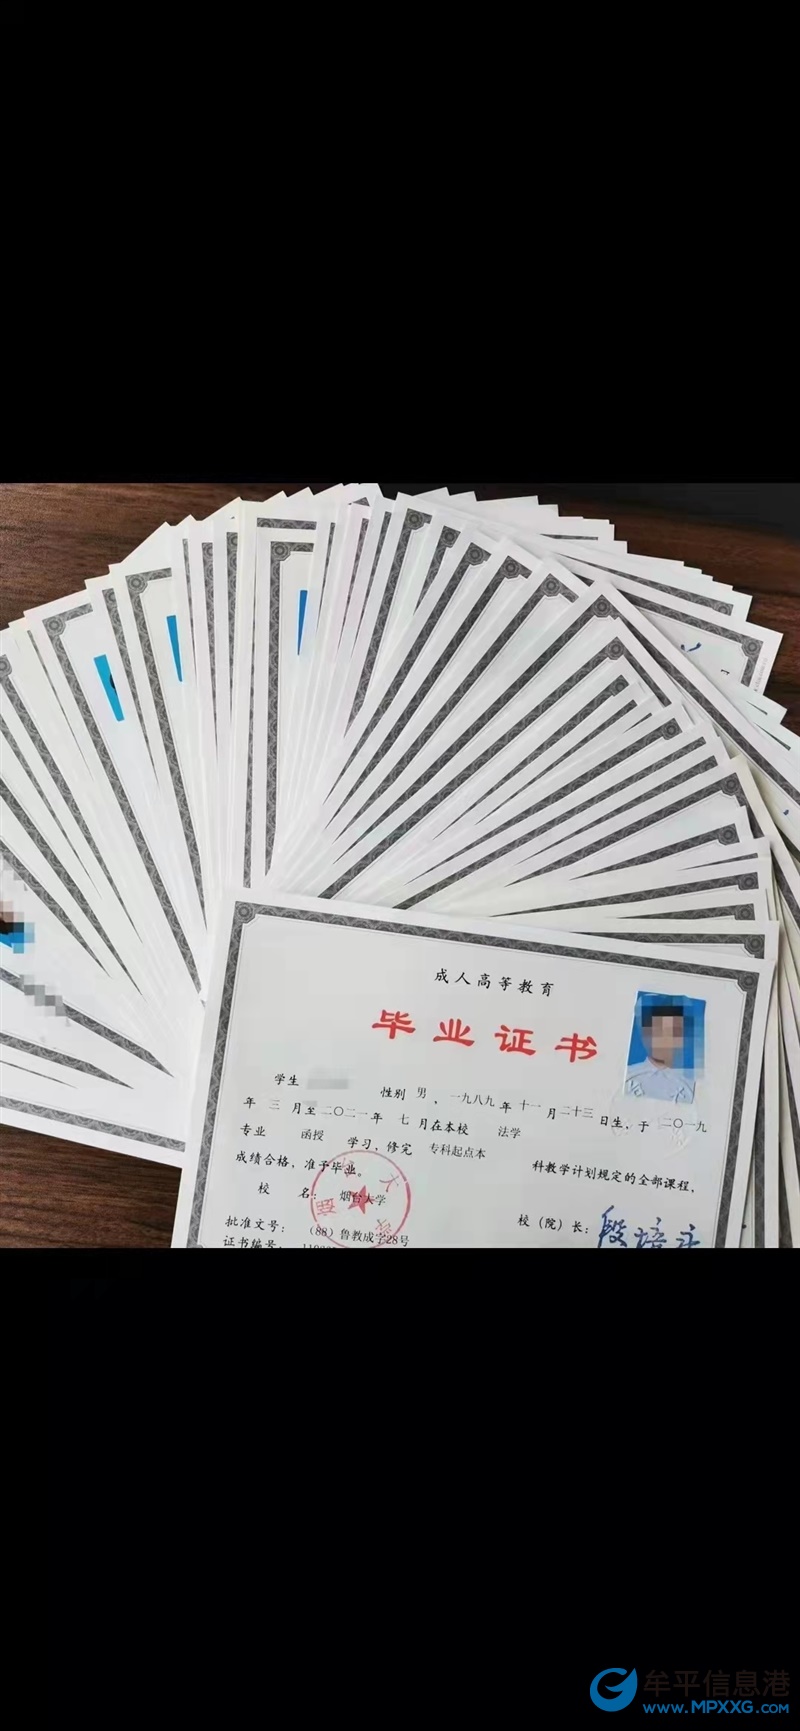 成人高等教育
毕业证书
学生 性别 男，一九八九年 十一月二十三日生，于 二〇一九
年 三 月至 二〇二一年 七 月在本校 法学
专业 函授 学习，修完 专科起点本 科教学计划规定的全部课程，
成绩合格，准予毕业。
校 名： 烟台大学
校（院）长：
批准文号： （88）鲁教成字28号
证书编号：
牟平信息港
www.MPXXG.COM